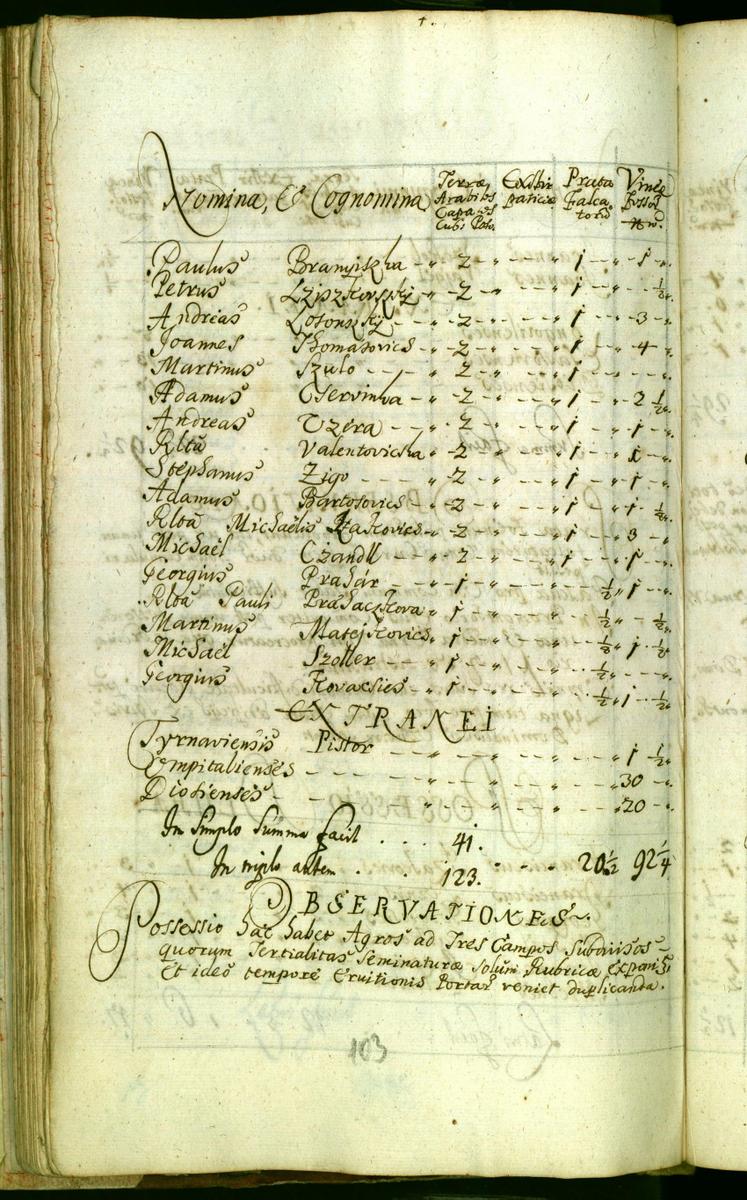 Nomina, & Cognomina Terræ Arabiles Capaces Cub: Poso. Exstirpaticiæ Prata Falcatorū Vineæ Fossorū
Paulus Bramiszka - " 2 - " - - - " 1 - " - 1 - "
Petrus - " 2 - " - - - " 1 - " - - ½ "
Andreas Losonszkÿ - " 2 - " - - - " 1 - " - 3 - "
Joannes Thomasovics - " 2 - " - - - " 1 - " - 4 - "
Martinus Szulo - - - " 2 - " - - - " 1 - " - - - "
Adamus Cservinka - " 2 - " - - - " 1 - " - 2 ½ "
Andreas Uzera - - " 2 - " - - - " 1 - " - 1 - "
Rlta Valentovicha " 2 - " - - - " 1 - " - 1 - "
Stephanus Zigo - - - " 2 - " - - - " 1 - " - 1 - "
Adamus Bartosovics - " 2 - " - - - " 1 - " - 1 ½ "
Rlta Michaelis - " 2 - " - - - " 1 - " - 3 - "
Michaël Czandll - - " 2 - " - - - " 1 - " - 1 - "
Georgius Prahár - - " 1 - " - - - " ½ " 1 - "
Rlta Pauli Prahaczkova " 1 - " - - - " ½ " - ½ "
Martinus Matejkovics " 1 - " - - - " ½ " 1 ½ "
Michaël Szoller - - " 1 - " - - - " ½ " - - "
Georgius Kovacsics - " 1 - " - - - " ½ " 1 ½ "
EXTRANEI
Tyrnaviensis Pistor - - " - - " - - - " - - " 1 ½ "
Xempitalienses - - - " - - " - - - " - - " 30 - "
Diosienses - - - " - - " - - - " - - " 20 - "
In Simplo Summa facit . . . . 41.
In triplo autem . . . . 123. - " - - 20½ 92¼
OBSERVATIONES
Possessio hæc habet Agros ad Tres Campos Subdivisos
quorum Tertialitas Seminaturæ solum Rubricæ
Et ideo tempore Eruitionis Portar veniet duplicanda.
103